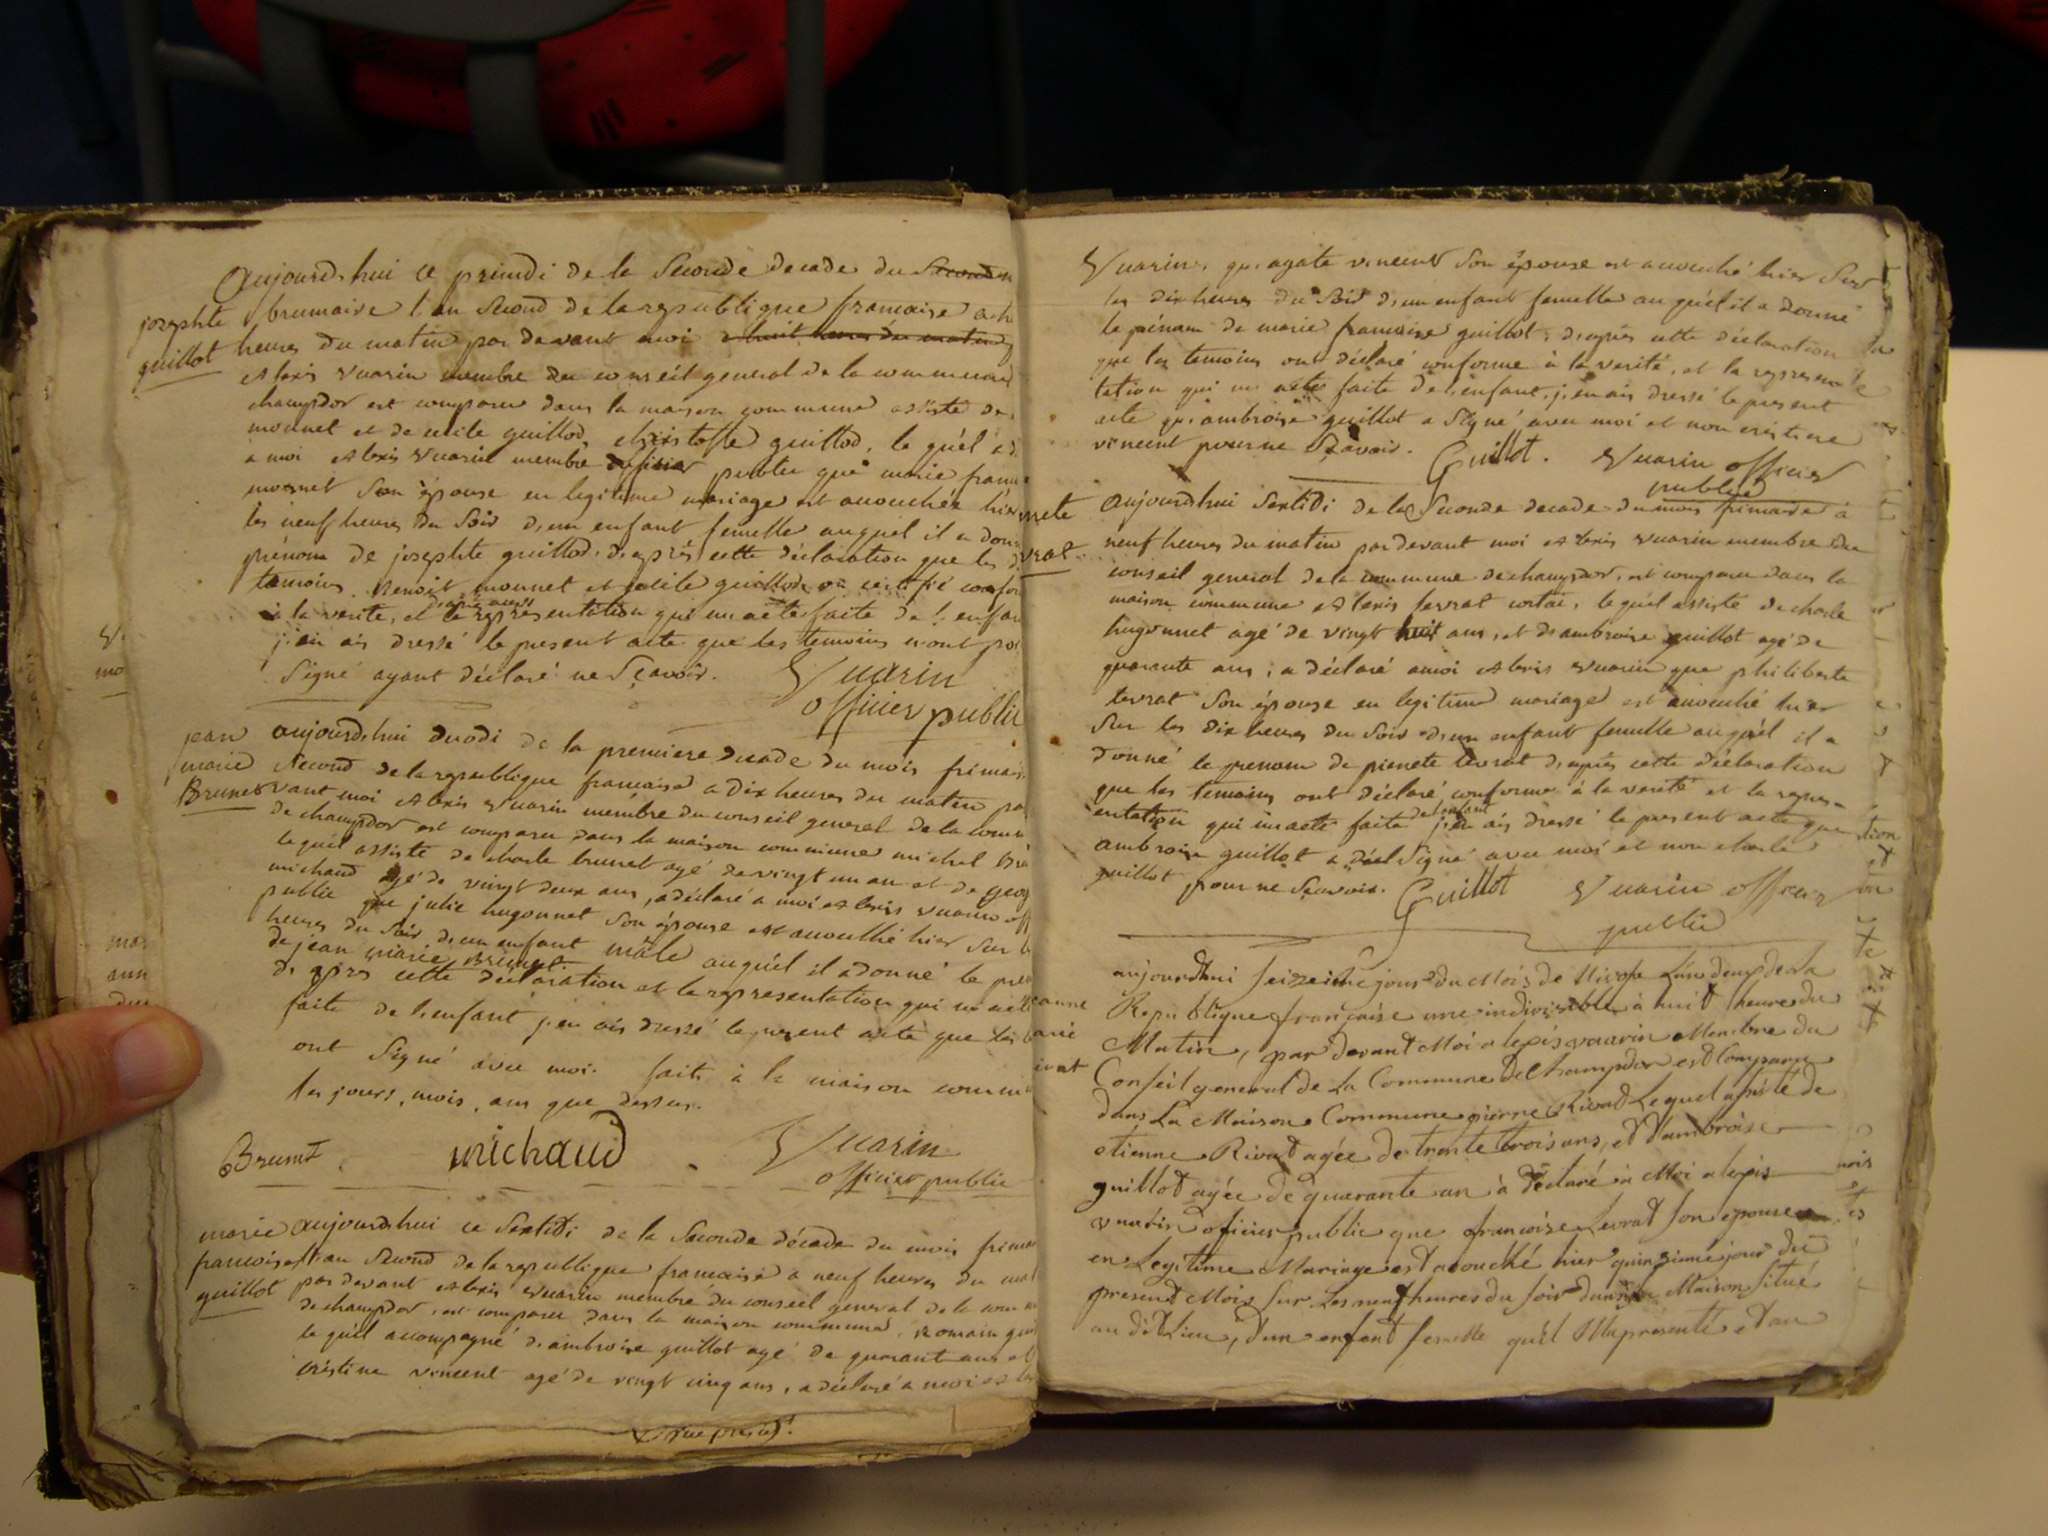 aujourd,hui ce primdi de la seconde decade du
josephte
guillot
brumaire l'an second de la republique francaise a
heures du matin par devant moi a huit heures du matin
Alexis Vuarin membre du conseil general de la commune
champdor est comparu dans la maison commune assisté de
monnet et de cecile guillod, christoffe guillod, le quel a
a moi Alexis Vuarin membre officier public que marie
monnet son épouse en legitime mariage est accouchée hier
les neuf heures du soir d,un enfant femelle auquel il a
prénom de josephte guillod, d,après cette déclaration que les
temoins Benoit monnet et cecile guillod on certifié
à la verité, et la représentation qui m acte faite de l,enfan
j,en ais dressé le present acte que les temoins n'ont
signé ayant déclaré ne sçavoir. Vuarin
officier public
jean
marie
Brunet
aujourd,hui duodi de la premiere decade du mois
second de la republique francaise a dix heures du matin
vant moi Alexis Vuarin membre du conseil general de la
de champdor est comparu dans la maison commune michel
le quel assisté de charle brunet agé de vingt un an et de
michaud agé de vingt deux ans, a déclaré a moi Alexis Vuarin
public que julie hugonnet son épouse est accouché hier sur
heures du soir d,un enfant mâle auquel il a donné le
de jean marie Brunet
d,après cette déclaration et la representation qui m acte
faite de l,enfant j,en ais dressé le present acte que les
ont signé avec moi. fait à la maison
les jours, mois, ans que dessus.
Brunet michaud Vuarin
officier public
marie
francoise
guillot
aujourd,hui ce sextidi de la seconde décade du mois
l'an second de la republique francaise a neuf heures du
par devant Alexis Vuarin membre du conseil general de la
de champdor, est comparu dans la maison commune, Romain
le quel accompagné d,ambroise guillot agé de quarant ans et
cristine vincent agé de vingt cinq ans, a déclaré a moi
Vuarin, que agate vincent son épouse est accouché hier sur
les dix heures du soir d,un enfant femelle au quel il a donné
le prénom de marie francoise guillot, d,après cette déclaration
que les temoins ont déclaré conforme à la verité, et la represen
tation qui m acte faite de l,enfant, j,en ais dressé le present
acte que ambroise guillot a signé avec moi et non cristine
vincent pour ne sçavoir. Guillot. Vuarin officier
public
aujourd,hui sextidi de la seconde decade du mois frimaire à
neuf heures du matin par devant moi Alexis Vuarin membre du
conseil general de la commune de champdor, est comparu dans la
maison commune Alexis levrat le quel assisté de charle
hugonnet agé de vingt huit ans, et d,ambroise guillot agé de
quarante ans, a déclaré a moi Alexis Vuarin que philiberte
levrat son épouse en legitime mariage est accouché hier
sur les dix heures du soir d,un enfant femelle au quel il a
donné le prenom de pierrete levrat d,après cette déclaration
que les temoins ont déclaré conforme à la verité et la repres-
entation qui m acte faite de l,enfant j,en ais dressé le present acte que
ambroise guillot a signé avec moi et non charle
guillot pour ne sçavoir. Guillot Vuarin officier
public
aujourdhui seizeime jour du Mois de Nivose L'an deux de La
Republique française une indivisible, à huit heure du
Matin, par devant Moi alexis vuarin Membre du
Conseil general de La Commune de Champdor est Comparu
dans La Maison Commune pierre Rivat Lequel assisté de
etienne Rivat agée de trente trois ans, et d'ambroise
guillot agée de quarante an à déclaré à Moi alexis
vuarin oficier public que francoise Levrat son epouse
en Legitime Mariage est acouché hier quinzieme jour du
present Mois sur Les neuf heures du soir dans sa Maison situé
au dit Lieu, d'un enfant femelle qu'il M'a presenté et au